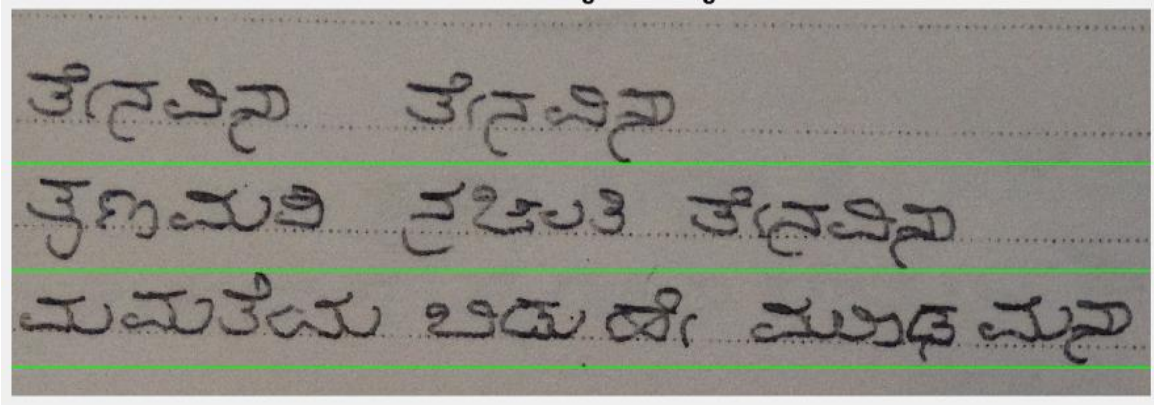 ತೇನವಿನಾ ತೇನವಿನಾ
ತೃಣಮಪಿ ನಚಲತಿ ತೇನವಿನಾ
ಮಮತೆಯ ಬಿಡು ಹೇ ಮೂಢ ಮನಾ